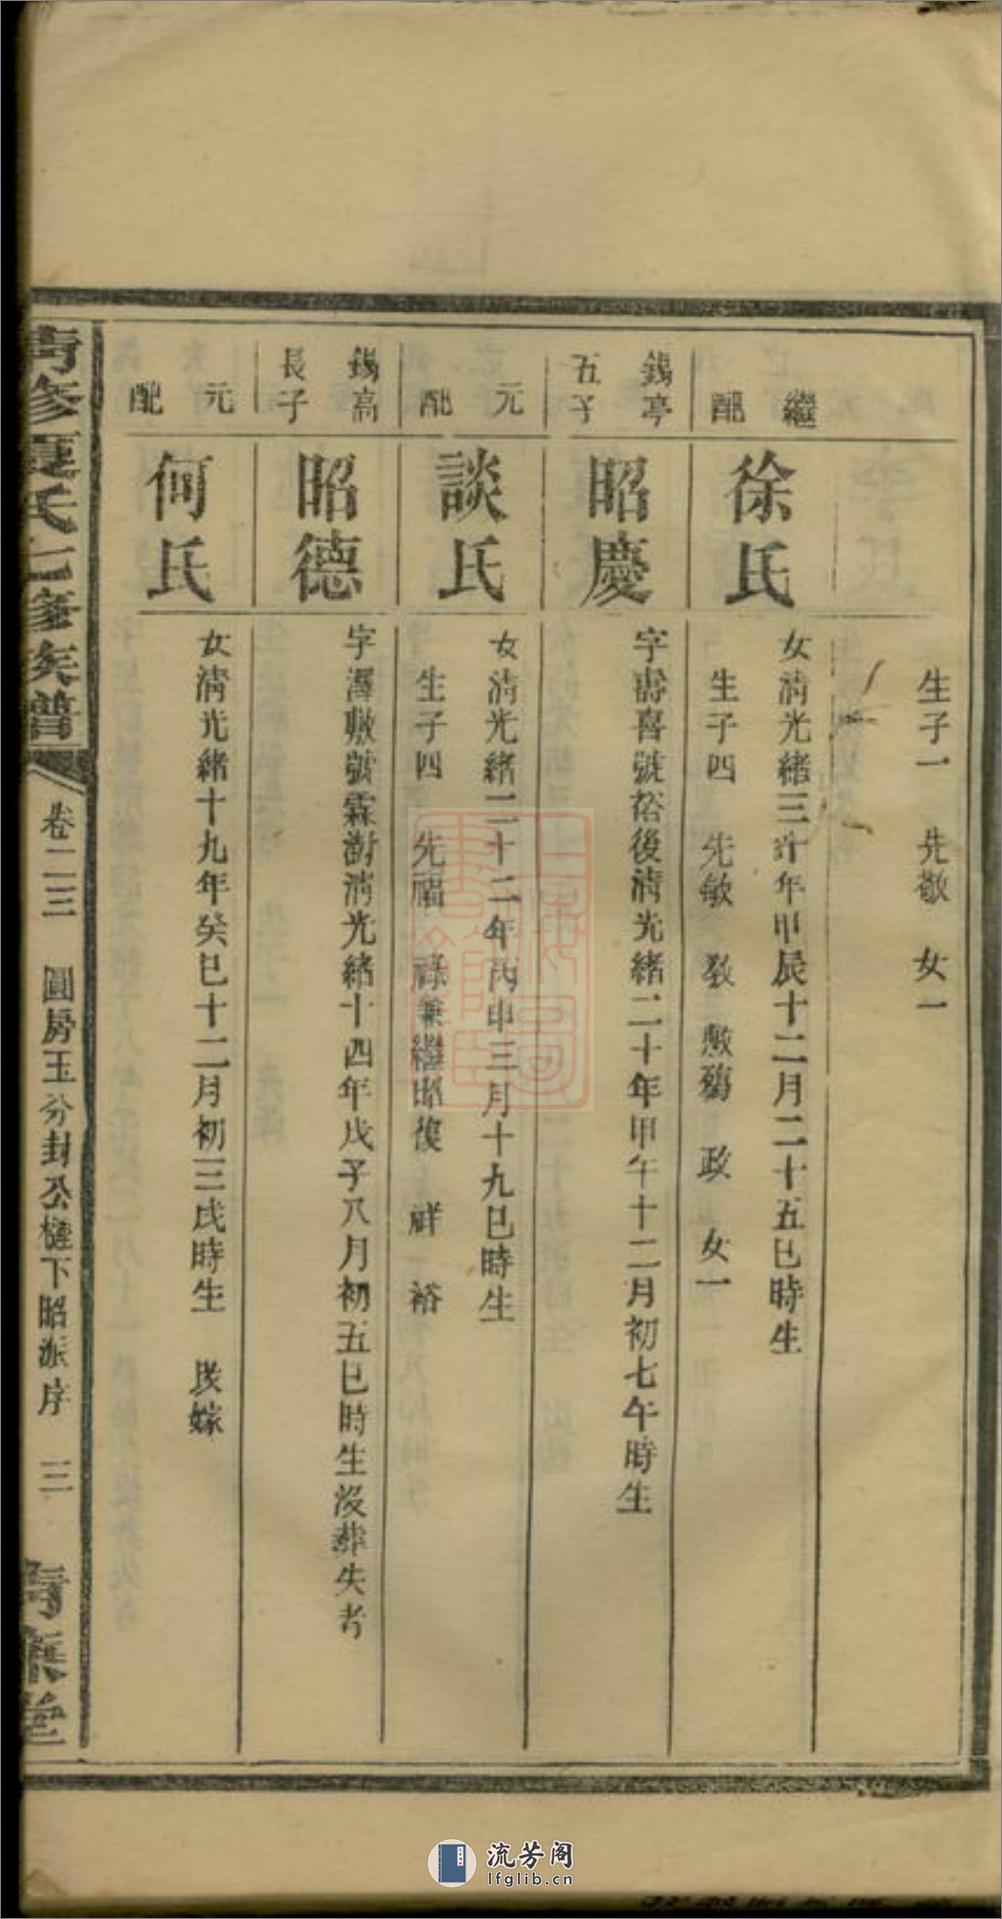 生子一 先敬 女一
繼配
徐氏
女清光緒三十年甲辰十二月二十五巳時生
生子四 先敏 教 敷 政 女一
錫亭五子
昭慶
字壽喜號裕後清光緒二十年甲午十二月初七午時生
元配
談氏
女清光緒二十二年丙申三月十九巳時生
生子四 先福 祿兼繼昭復 祥 裕
錫高長子
昭德
字澤敷號霖澍清光緒十四年戊子八月初五巳時生沒葬失考
元配
何氏
女清光緒十九年癸巳十二月初三戌時生 改嫁
夏氏七修族譜
卷二三 圓房玉分封公 下昭派序 三
堂
流芳阁
lfglib.cn